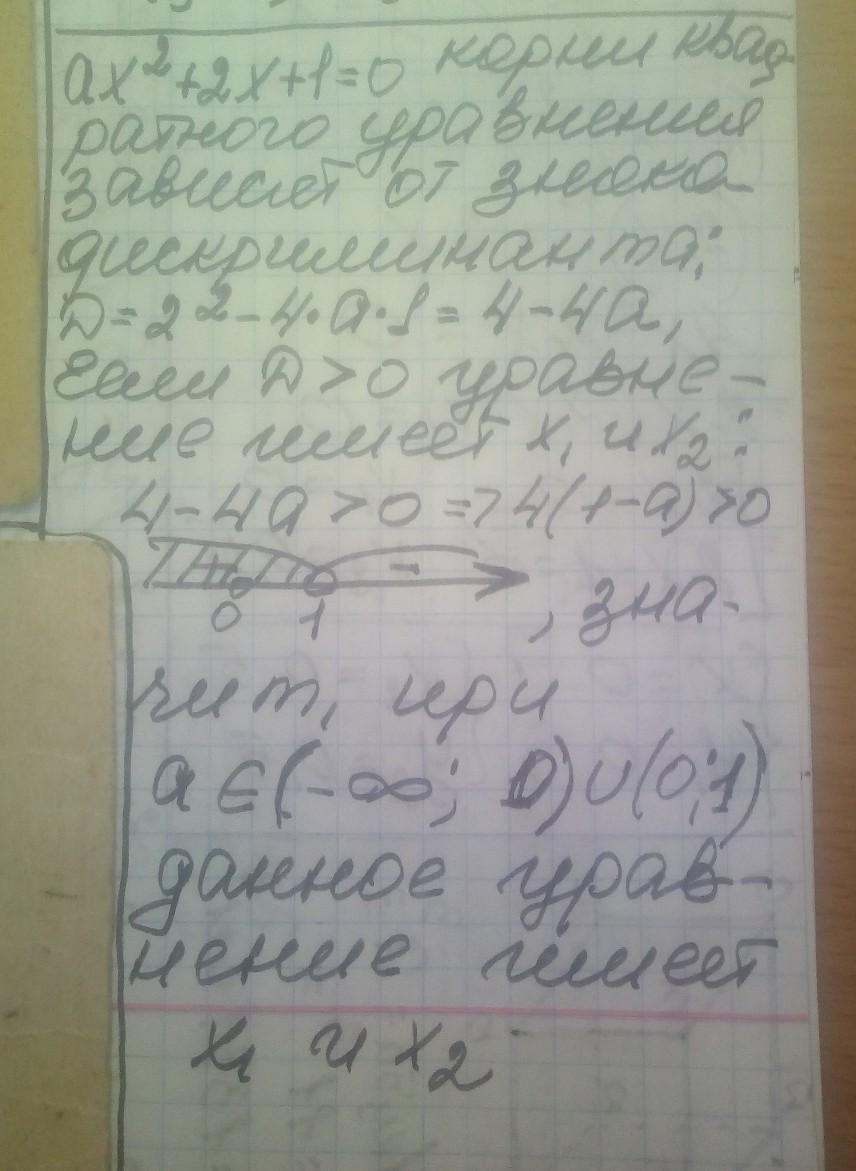 ax²+2x+1=0 корни квад-
ратного уравнения
зависят от знака
дискриминанта:
D=2²-4·a·1=4-4a,
Если D>0 уравне-
ние имеет x₁ и x₂:
4-4a>0=>4(1-a)>0
+ -
0 1 , зна-
чит, при
a∈(-∞; 0)∪(0;1)
данное урав-
нение имеет
x₁ и x₂